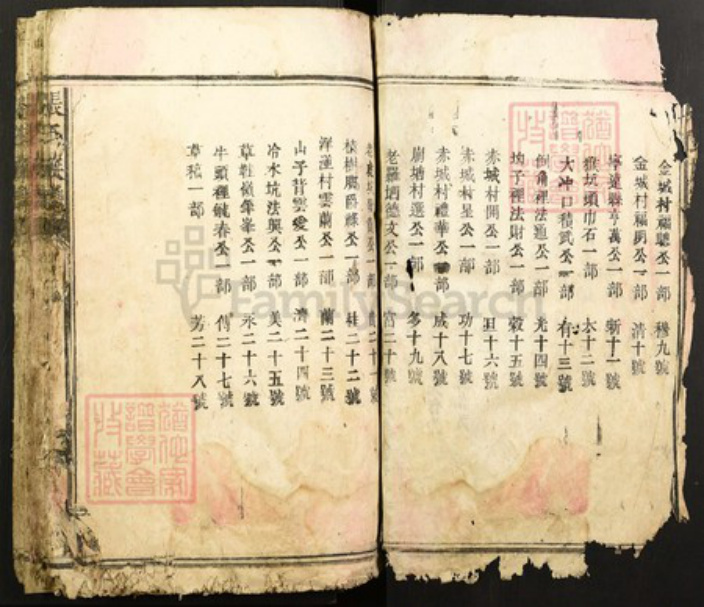 金城村福聰公一部 穆九號
金城村福男公一部 清十號
寧遠縣亨萬公一部 新十一號
坑頭巾石一部 本十二號
大冲口積武公一部 有十三號
倒角裡法通公一部 光十四號
坳子裡法財公一部 穀十五號
赤城村開公一部 丑十六號
赤城村星公一部 功十七號
赤城村禮華公一部 成十八號
廟塘村選公一部 多十九號
老羅塘德文公一部 富二十號
公一部 二十一號
樹腳爵祿公一部 桂二十二號
洋蓮村雲蘭公一部 蘭二十三號
山子背雲愛公一部 濟二十四號
冷水坑法興公一部 美二十五號
草鞋嶺肇峯公一部 永二十六號
牛頭裡毓春公一部 傳二十七號
草稿一部 芳二十八號
張氏族譜
譜學會
FamilySearch